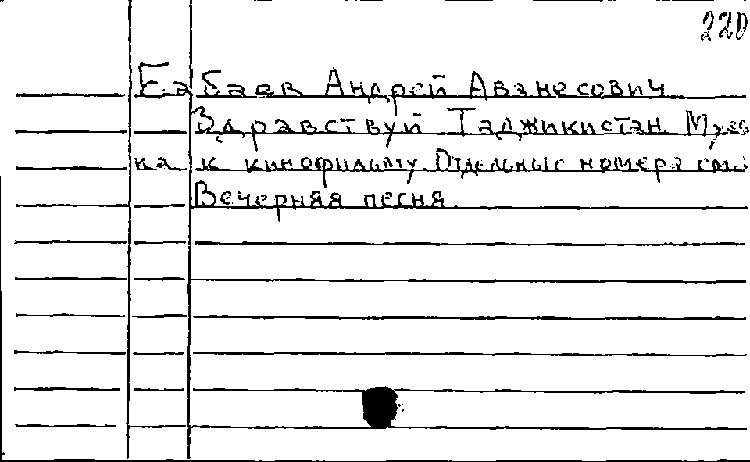 220
Бабаев Андрей Аванесович
Здравствуй Таджикистан. Музы
ка к кинофильму. Отдельные номера см:
Вечерняя песня.